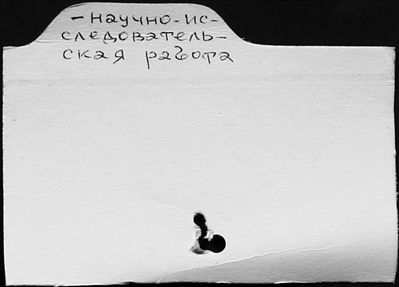 - научно-ис-
следователь-
ская работа